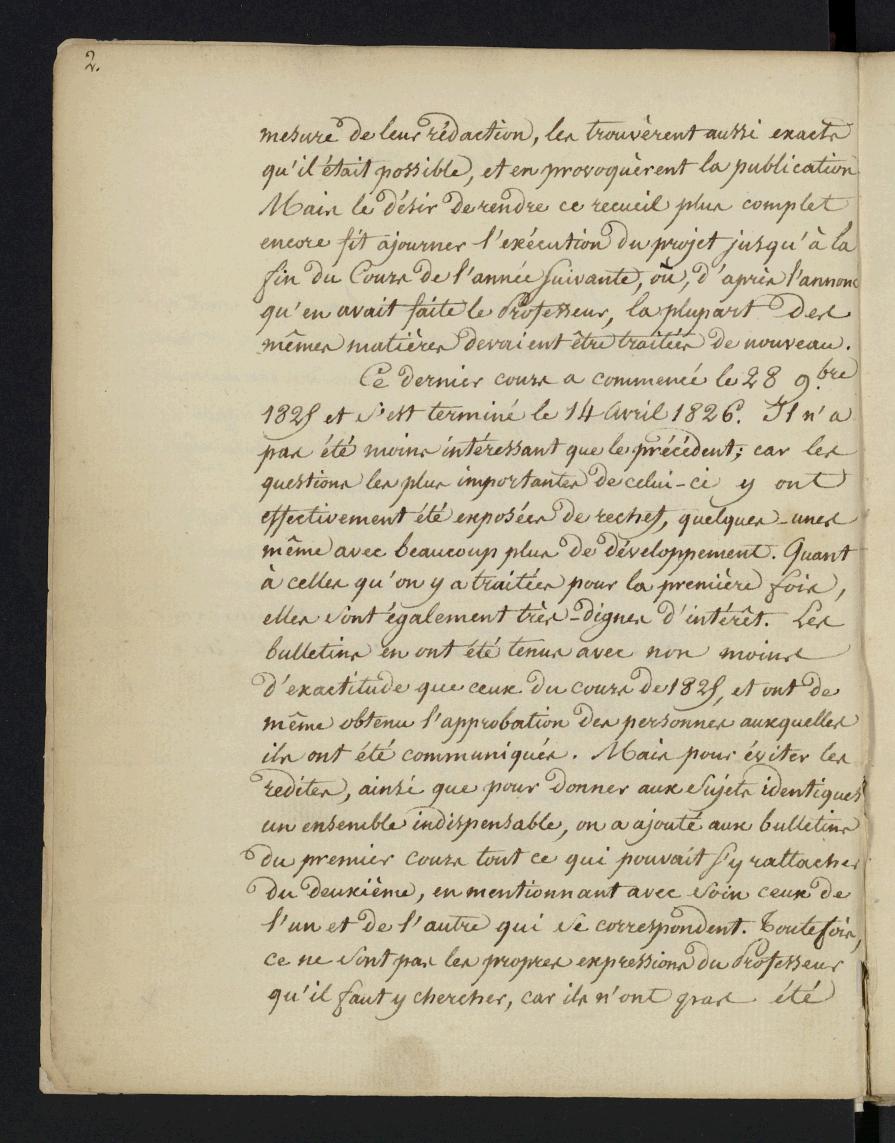 2.
mesure de leur rédaction, les trouvèrent aussi exacts
qu'il était possible, et en provoquèrent la publication
Mais le désir de rendre ce recueil plus complet
encore fit ajourner l'exécution du projet jusqu'à la
fin du Cours de l'année suivante, où, d'après l'annonc
qu'en avait faite le Professeur, la plupart des
mêmes matières devaient être traitées de nouveau.
Ce dernier cours a commencé le 28 9.bre
1825 et s'est terminé le 14 Avril 1826. Il n'a
pas été moins intéressant que le précédent; car les
questions les plus importantes de celui-ci y ont
effectivement été exposées de rechef, quelques-unes
même avec beaucoup plus de développement. Quant
à celles qu'on y a traitées pour la première fois,
elles sont également très-dignes d'intérêt. Les
bulletins en ont été tenus avec non moins
d'exactitude que ceux du cours de 1825, et ont de
même obtenu l'approbation des personnes auxquelles
ils ont été communiqués. Mais pour éviter les
redites, ainsi que pour donner aux sujets identiques
un ensemble indispensable, on a ajouté aux bulletins
du premier cours tout ce qui pouvait s'y rattacher
du deuxième, en mentionnant avec soin ceux de
l'un et de l'autre qui se correspondent. Toutefois,
ce ne sont pas les propres expressions du Professeur
qu'il faut y chercher, car ils n'ont pas été